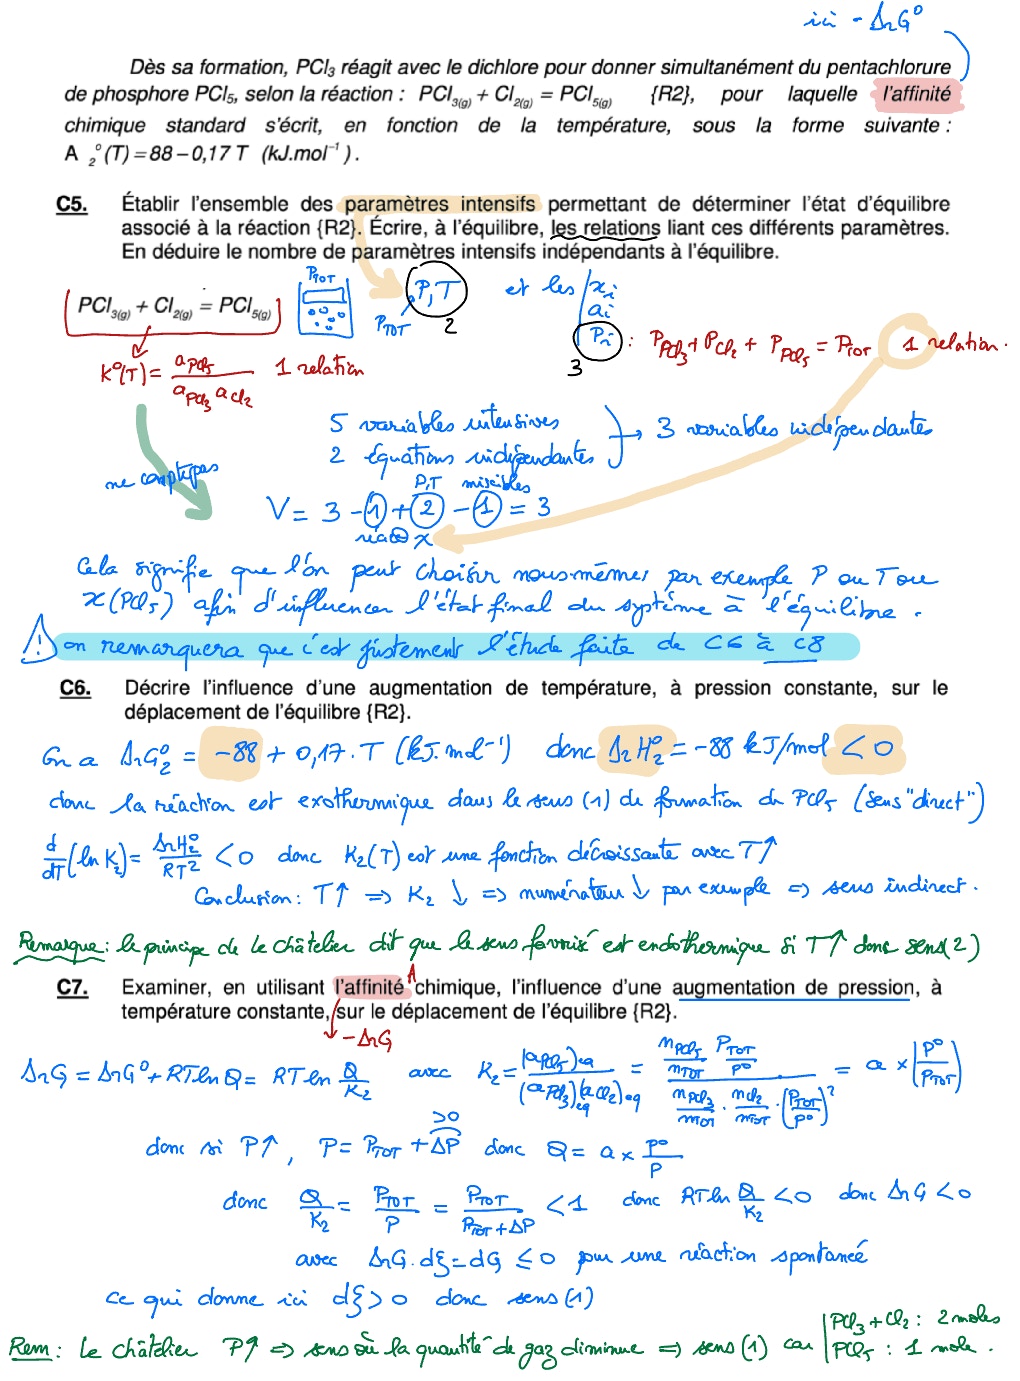 ici - ΔrG°
Dès sa formation, PCl3 réagit avec le dichlore pour donner simultanément du pentachlorure
de phosphore PCl5, selon la réaction : PCl3(g) + Cl2(g) = PCl5(g) {R2}, pour laquelle l'affinité
chimique standard s'écrit, en fonction de la température, sous la forme suivante :
A 2°(T) = 88 – 0,17 T (kJ.mol-1).
C5. Établir l'ensemble des paramètres intensifs permettant de déterminer l'état d'équilibre
associé à la réaction {R2}. Écrire, à l'équilibre, les relations liant ces différents paramètres.
En déduire le nombre de paramètres intensifs indépendants à l'équilibre.
PTOT
PCl3(g) + Cl2(g) = PCl5(g)
P,T et les xi
PTOT 2 ai
Pi : PPCl3 + PCl2 + PPCl5 = PTOT 1 relation.
3
K°(T) = aPCl5 / aPCl3 aCl2 1 relation
5 variables intensives
2 équations indépendantes → 3 variables indépendantes
ne comptez pas
P,T miscibles
V = 3 - 1 + 2 - 1 = 3
réac° x
Cela signifie que l'on peut choisir nous-mêmes par exemple P ou T ou
x(PCl5) afin d'influencer l'état final du système à l'équilibre.
! on remarquera que c'est justement l'étude faite de C6 à C8
C6. Décrire l'influence d'une augmentation de température, à pression constante, sur le
déplacement de l'équilibre {R2}.
On a ΔrG2° = -88 + 0,17.T (kJ.mol-1) donc ΔrH2° = -88 kJ/mol < 0
donc la réaction est exothermique dans le sens (1) de formation de PCl5 (sens "direct")
d/dT (ln K2) = ΔrH2°/RT² < 0 donc K2(T) est une fonction décroissante avec T↑
Conclusion : T↑ ⇒ K2 ↓ ⇒ numérateur ↓ par exemple ⇒ sens indirect.
Remarque : le principe de Le châtelier dit que le sens favorisé est endothermique si T↑ donc sens (2)
C7. Examiner, en utilisant l'affinité A chimique, l'influence d'une augmentation de pression, à
température constante, sur le déplacement de l'équilibre {R2}.
- ΔrG
ΔrG = ΔrG° + RT ln Q = RT ln Q/K2 avec K2 = (aPCl5)eq / (aPCl3)eq (aCl2)eq = nPCl5/nTOT PTOT/P° / nPCl3/nTOT . nCl2/nTOT . (PTOT/P°)² = a × (P°/PTOT)
donc si P↑, P = PTOT + ΔP >0 donc Q = a × P°/P
donc Q/K2 = PTOT/P = PTOT/PTOT + ΔP < 1 donc RT ln Q/K2 < 0 donc ΔrG < 0
avec ΔrG.dξ = dG ≤ 0 pour une réaction spontanée
ce qui donne ici dξ > 0 donc sens (1)
Rem : Le châtelier P↑ ⇒ sens où la quantité de gaz diminue ⇒ sens (1) car PCl3 + Cl2 : 2 moles
PCl5 : 1 mole.